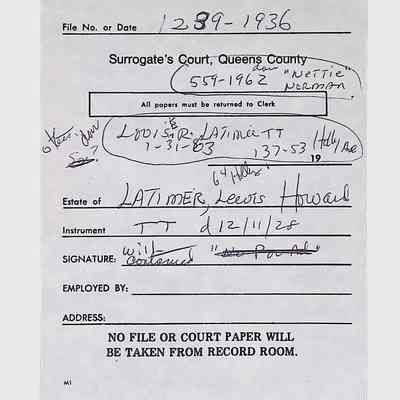 File No. or Date 1289-1936
Surrogate's Court, Queens County
559-1962 dau "Nettie" NORMAN
All papers must be returned to Clerk
LOUIS R. LATIMER TT
7-31-63 137-53 Holly Ave
Son?
19
64 Holly
Estate of LATIMER, Lewis Howard
Instrument TT d 12/11/28
SIGNATURE: will Contained
EMPLOYED BY:
ADDRESS:
NO FILE OR COURT PAPER WILL
BE TAKEN FROM RECORD ROOM.
M1